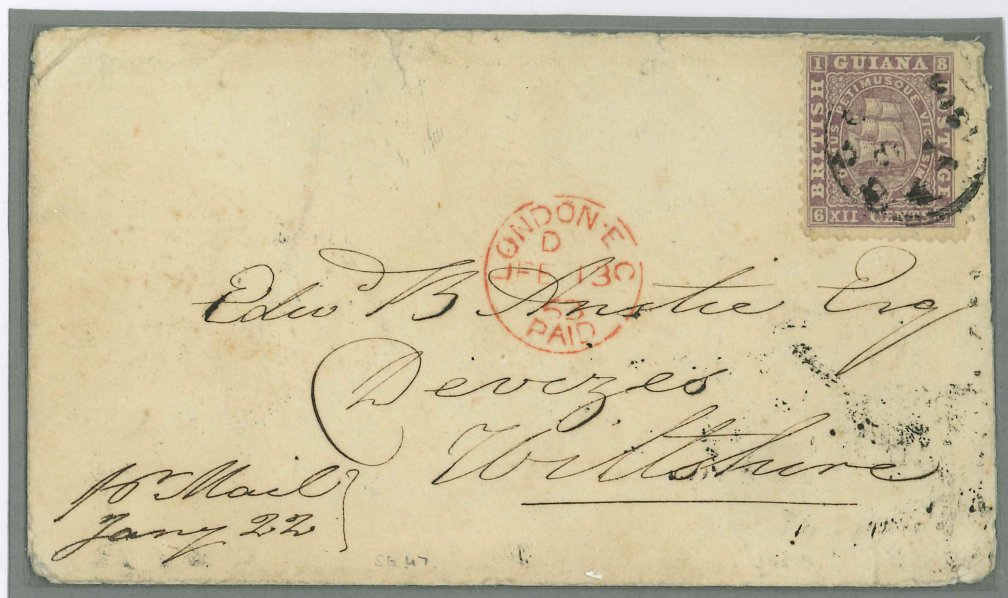 1 GUIANA 8
BRITISH
POSTAGE
DAMUS PETIMUSQUE VICISSIM
6 XII CENTS
LONDON·E C
D
FE 13
63
PAID
Edwd B Anstie Esq
Devizes
Wiltshire
pr Mail
Jany 22
SG 47